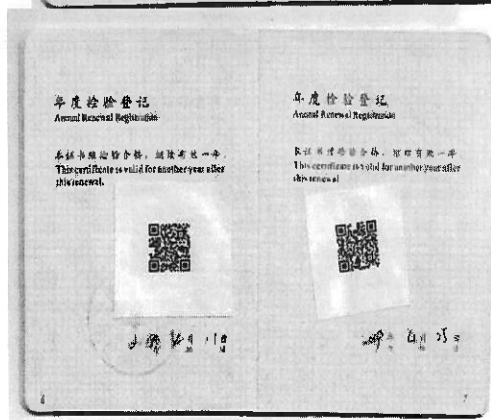 年度检验登记
Annual Renewal Registration
本证书经检验合格，继续有效一年。
This certificate is valid for another year after
this renewal.
6
年度检验登记
Annual Renewal Registration
本证书经检验合格，继续有效一年
This certificate is valid for another year after
this renewal
7